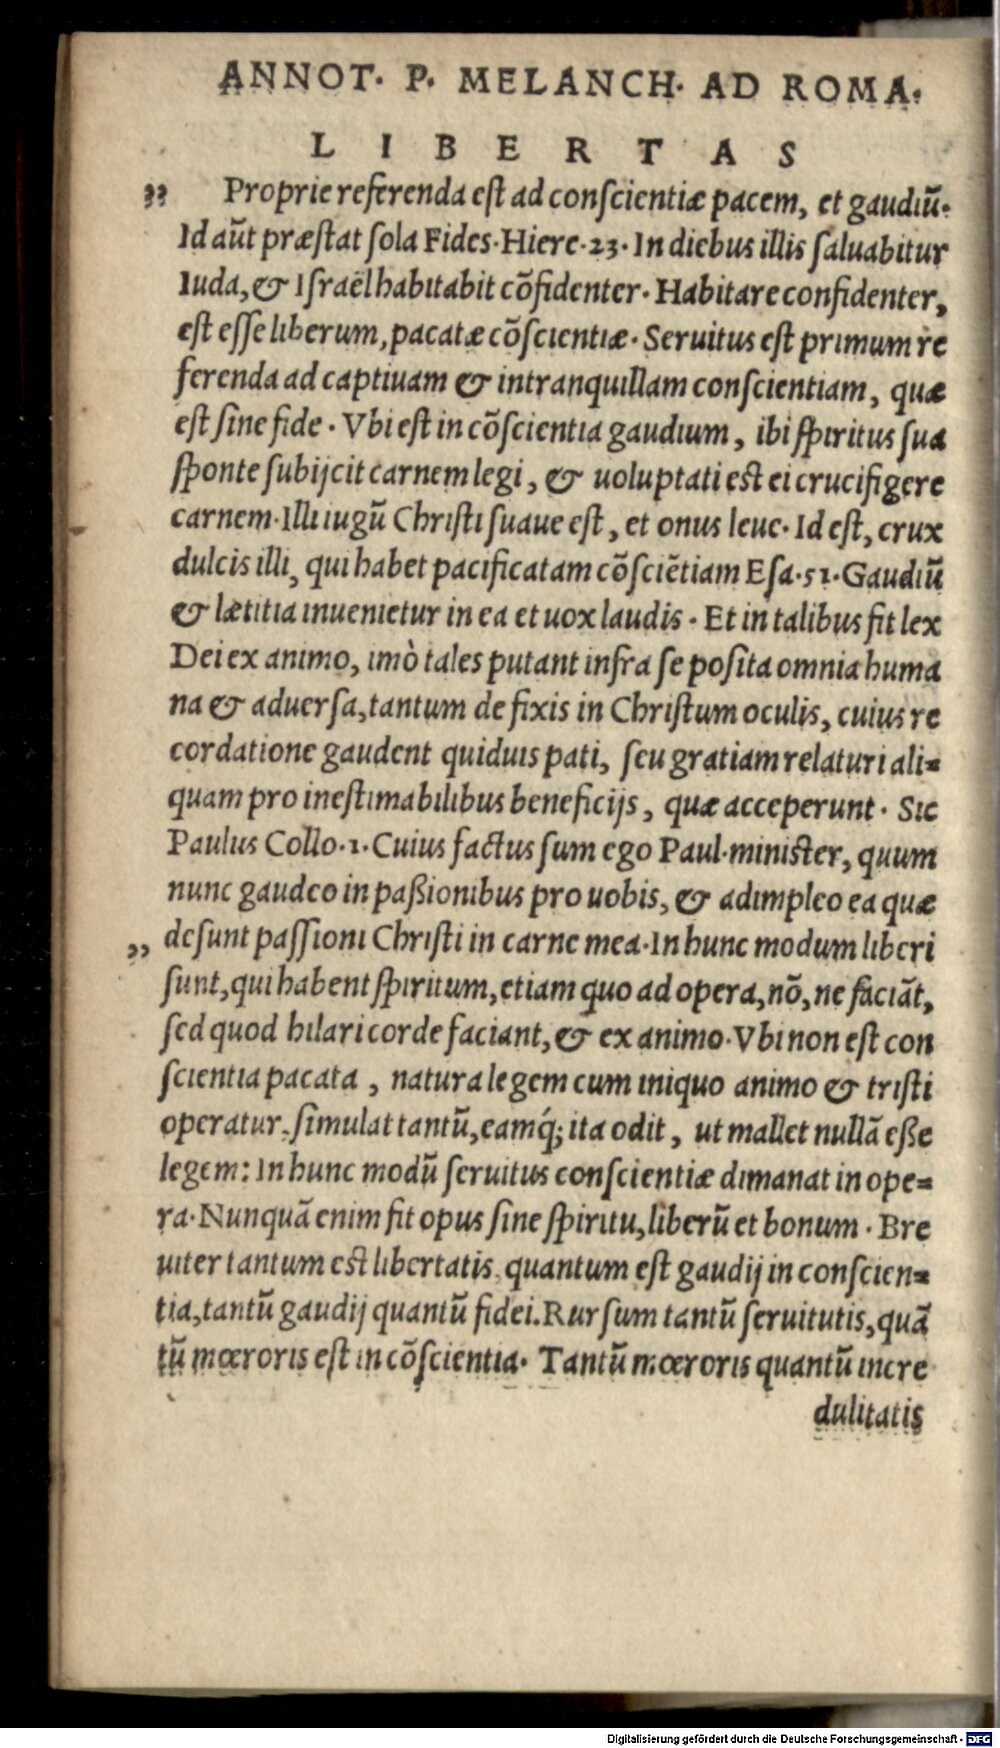 ANNOT. P. MELANCH. AD ROMA.
LIBERTAS
„ Proprie referenda eſt ad conſcientiæ pacem, et gaudiũ.
Id aũt præſtat ſola Fides. Hiere. 23. In diebus illis ſaluabitur
Iuda, & Iſraël habitabit cõfidenter. Habitare confidenter,
eſt eſſe liberum, pacatæ cõſcientiæ. Seruitus eſt primum re
ferenda ad captiuam & intranquillam conſcientiam, quæ
eſt ſine fide. Vbi eſt in cõſcientia gaudium, ibi ſpiritus ſua
ſponte ſubijcit carnem legi, & uoluptati eſt ei crucifigere
carnem. Illi iugũ Chriſti ſuaue eſt, et onus leue. Id eſt, crux
dulcis illi, qui habet pacificatam cõſciẽtiam Eſa. 51. Gaudiũ
& lætitia inuenietur in ea et uox laudis. Et in talibus fit lex
Dei ex animo, imò tales putant infra ſe poſita omnia huma
na & aduerſa, tantum defixis in Chriſtum oculis, cuius re
cordatione gaudent quiduis pati, ſeu gratiam relaturi ali=
quam pro ineſtimabilibus beneficijs, quæ acceperunt. Sic
Paulus Collo. 1. Cuius factus ſum ego Paul. miniſter, quum
nunc gaudeo in paßionibus pro uobis, & adimpleo ea quæ
„ deſunt paſſioni Chriſti in carne mea. In hunc modum liberi
ſunt, qui habent ſpiritum, etiam quo ad opera, nõ, ne faciãt,
ſed quod hilari corde faciant, & ex animo. Vbi non eſt con
ſcientia pacata, natura legem cum iniquo animo & triſti
operatur, ſimulat tantũ, eamq́; ita odit, ut mallet nullã eße
legem: In hunc modũ ſeruitus conſcientiæ dimanat in ope=
ra. Nunquã enim fit opus ſine ſpiritu, liberũ et bonum. Bre
uiter tantum eſt libertatis, quantum eſt gaudij in conſcien=
tia, tantũ gaudij quantũ fidei. Rurſum tantũ ſeruitutis, quã
tũ mœroris eſt in cõſcientia. Tantũ mœroris quantũ incre
dulitatis
Digitalisierung gefördert durch die Deutsche Forschungsgemeinschaft - DFG